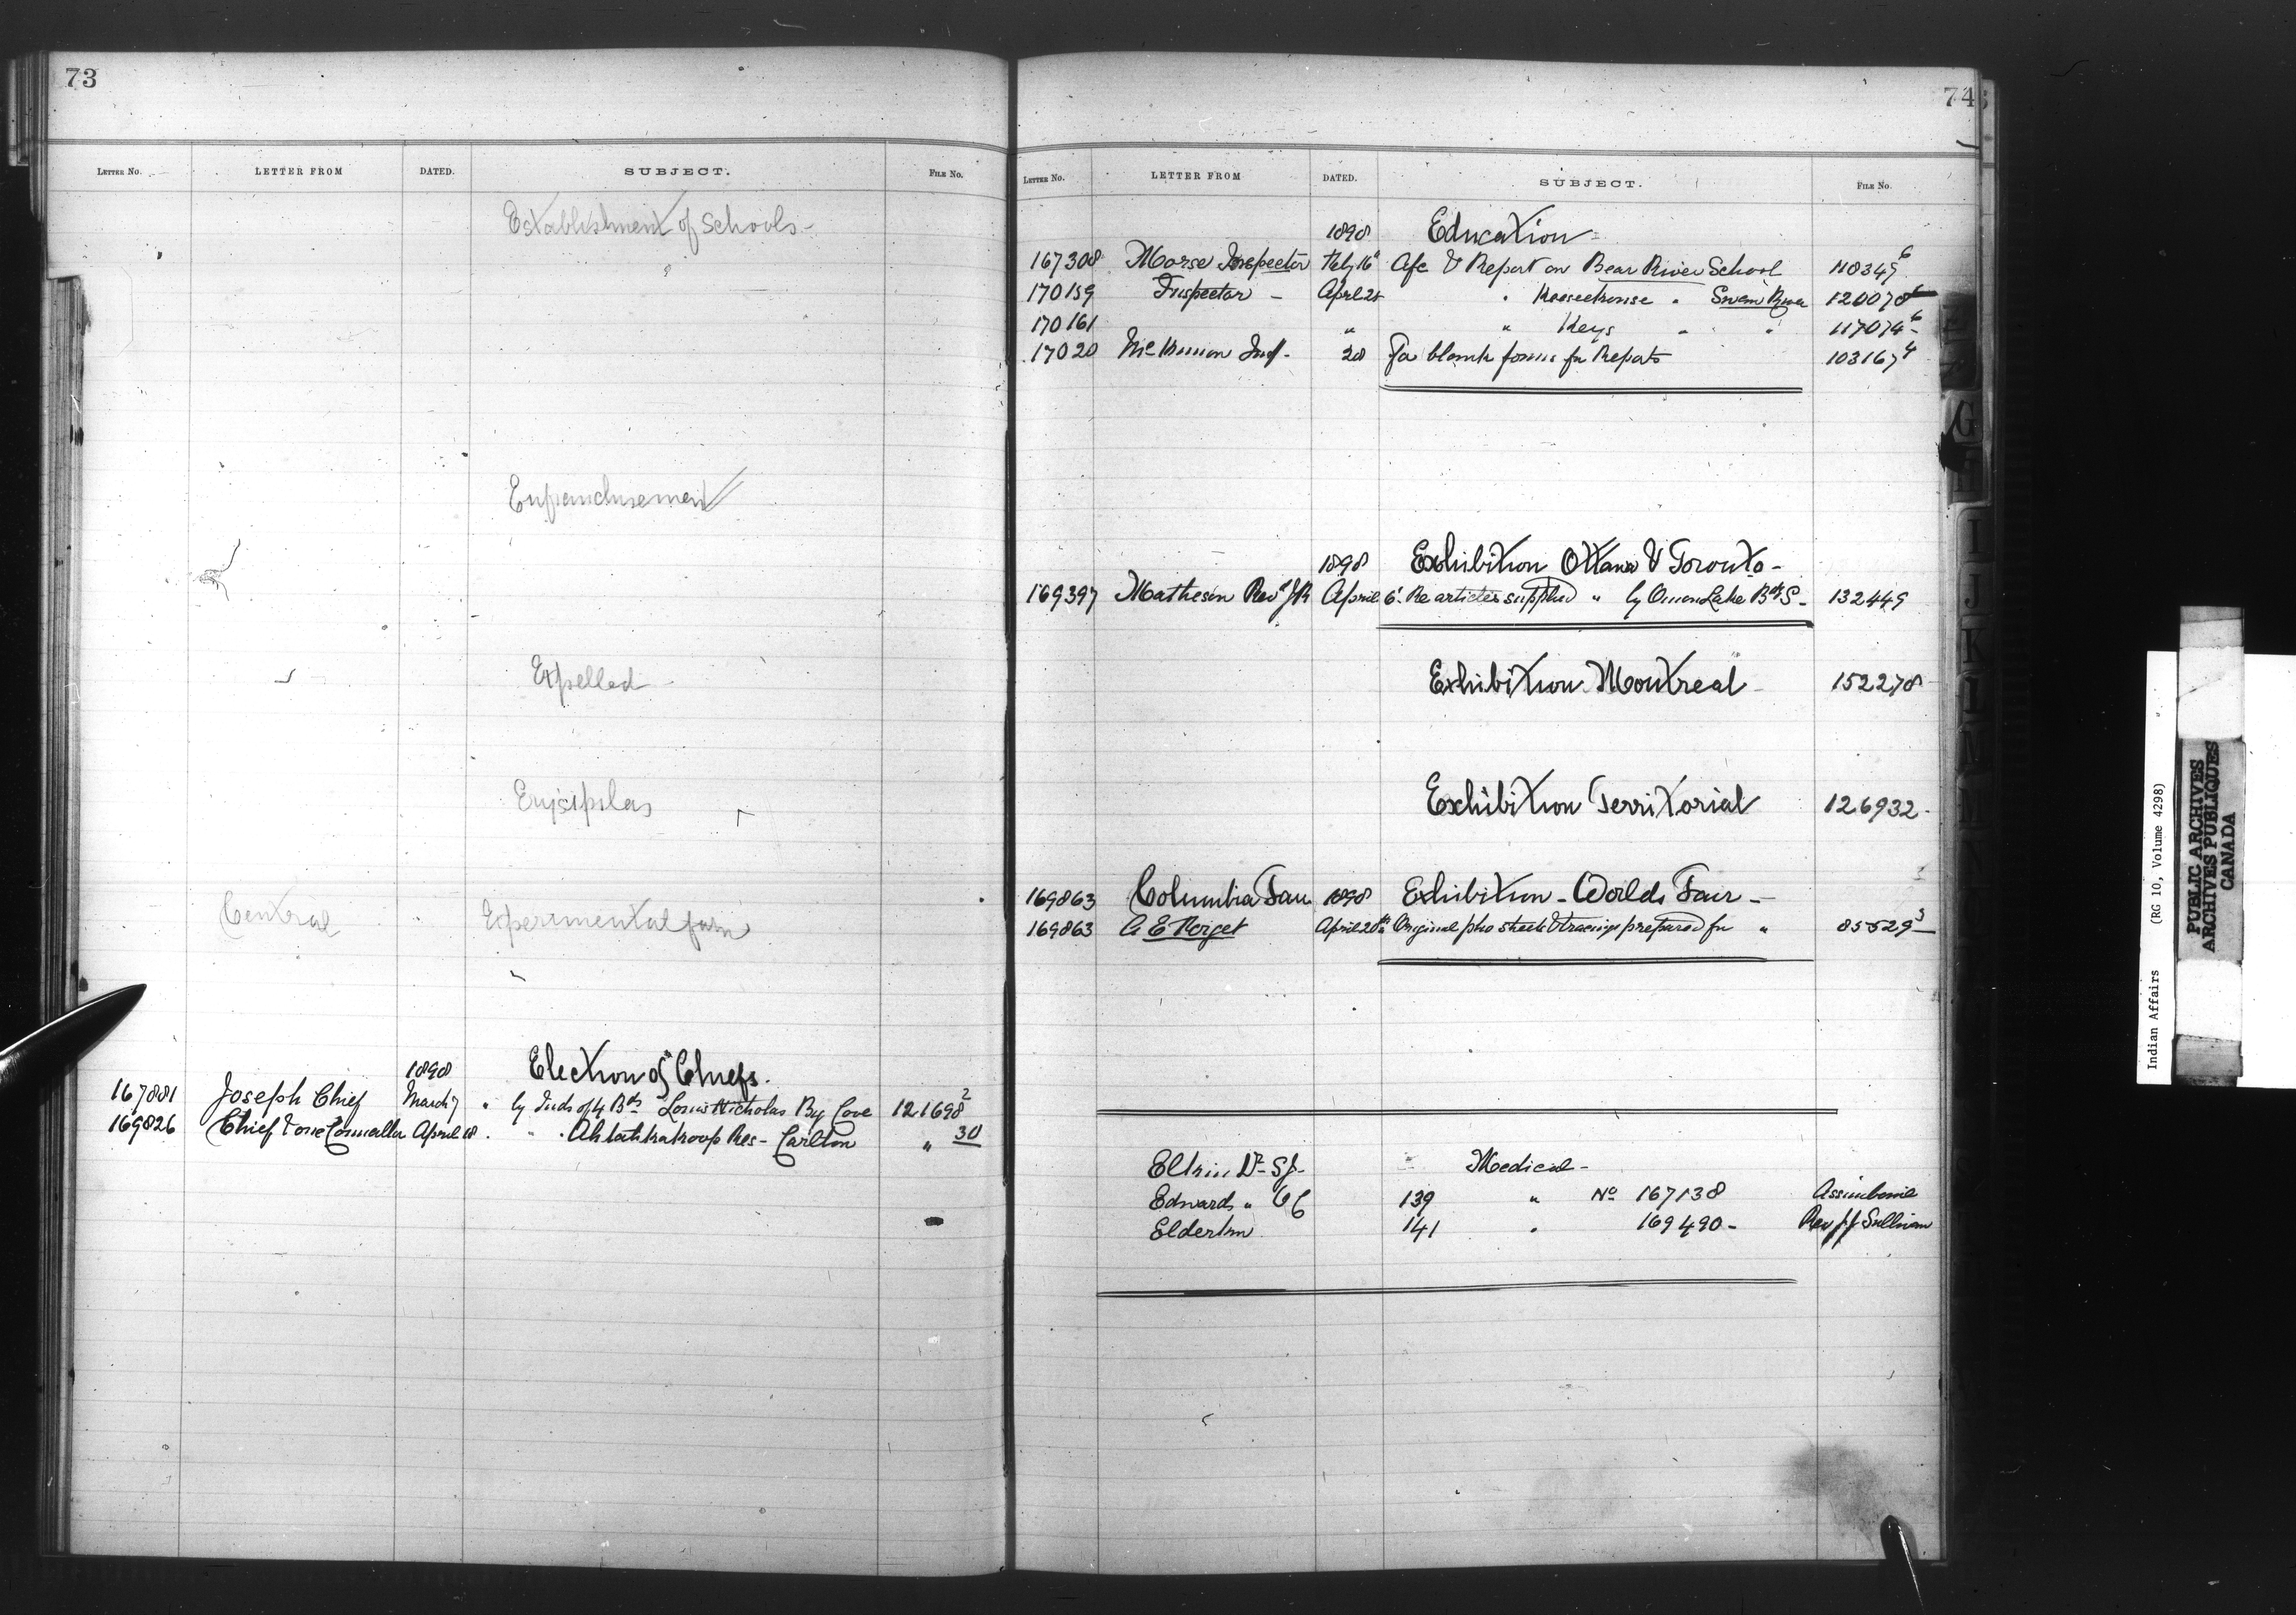 73
LETTER NO. LETTER FROM DATED. SUBJECT. FILE NO.
Establishment of Schools -
Enfranchisement
Expelled -
Erysipilas
Central Experimental farm
1898 Election of Chiefs.
167881 Joseph Chief March 7 " by Inds of 4 Bds Louis Nicholas By Cove 121698 2
169826 Chief April 18 " Ahtahkakoop Res - Carlton " 30
74
LETTER NO. LETTER FROM DATED. SUBJECT. FILE NO.
1898 Education -
167308 Morse Inspector Feby 16 Afc & Report on Bear River School 118349 6
170159 Inspector - April 28 " Keeseekouse " Swan River 120070
170161 " " Keys " " 117074 6
17020 28 For blank forms for Reports 103167 4
1898 Exhibition Ottawa & Toronto -
169397 Matheson Revd JR April 6 Re articles supplied " by Onion Lake Bdg S - 132449
Exhibition Montreal - 152278
Exhibition Territorial 126932 -
169863 Columbia Fair 1898 Exhibition - Worlds Fair -
169863 A E Forget April 20th Original sheets & tracings prepared for " 85529 3
Dr - Medical -
Edwards " O C 139 " No 167138 Assiniboine
Elderkin 141 " 169490 - Rev JJ Sullivan
G
I
J
K
L
M
PUBLIC ARCHIVES
ARCHIVES PUBLIQUES
CANADA
Indian Affairs (RG 10, Volume 4298)